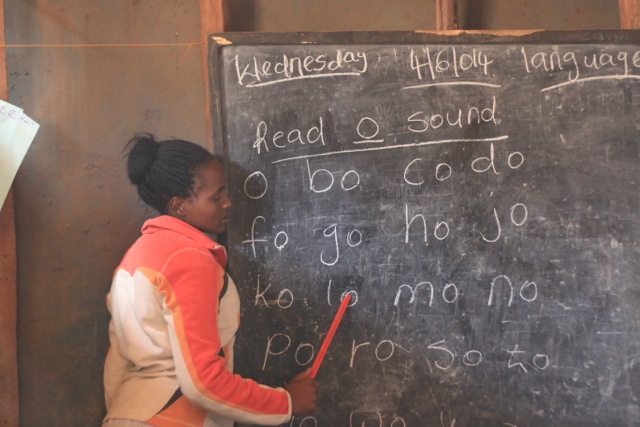 Wednesday 4/6/04 language
Read o sound
o bo co do
fo go ho jo
ko lo mo no
po ro so to